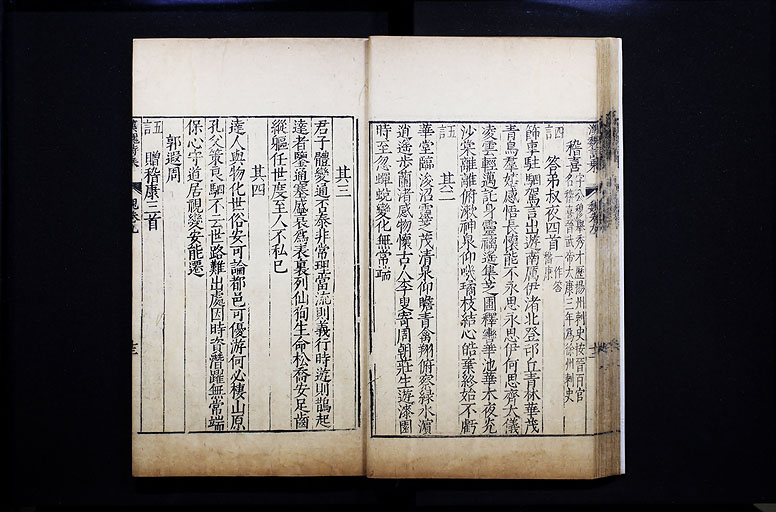 稽喜字公穆舉秀才歷揚州刺史按晉百官
名稽喜晉武帝太康三年爲徐州刺史
四言 答弟叔夜四首一作答稽康
飾車駐駟駕言出遊南厲伊渚北登邙丘青林華茂
青鳥羣嬉感悟長懷能不永思永思伊何思齊大儀
凌雲輕邁託身靈螭遥集芝圃釋轡華池華木夜光
沙棠離離俯漱神泉仰嘰瓊枝結心皓素終始不虧
五言 其二
華堂臨浚沼靈芝茂清泉仰瞻青禽翔俯察緑水濱
逍遥步蘭渚感物懷古人李叟寄周朝莊生遊漆園
時至忽蟬蛻變化無常端
其三
君子體變通否泰非常理當流則義行時遊則鵲起
達者鑒通塞盛衰爲表裏列仙狥生命松喬安足齒
縱軀任世度至人不私已
其四
達人與物化世俗安可論都邑可優游何必棲山原
孔父策良駟不云世路難出處因時資潛躍無常端
保心守道居視變安能遷
郭遐周
五言 贈稽康三首